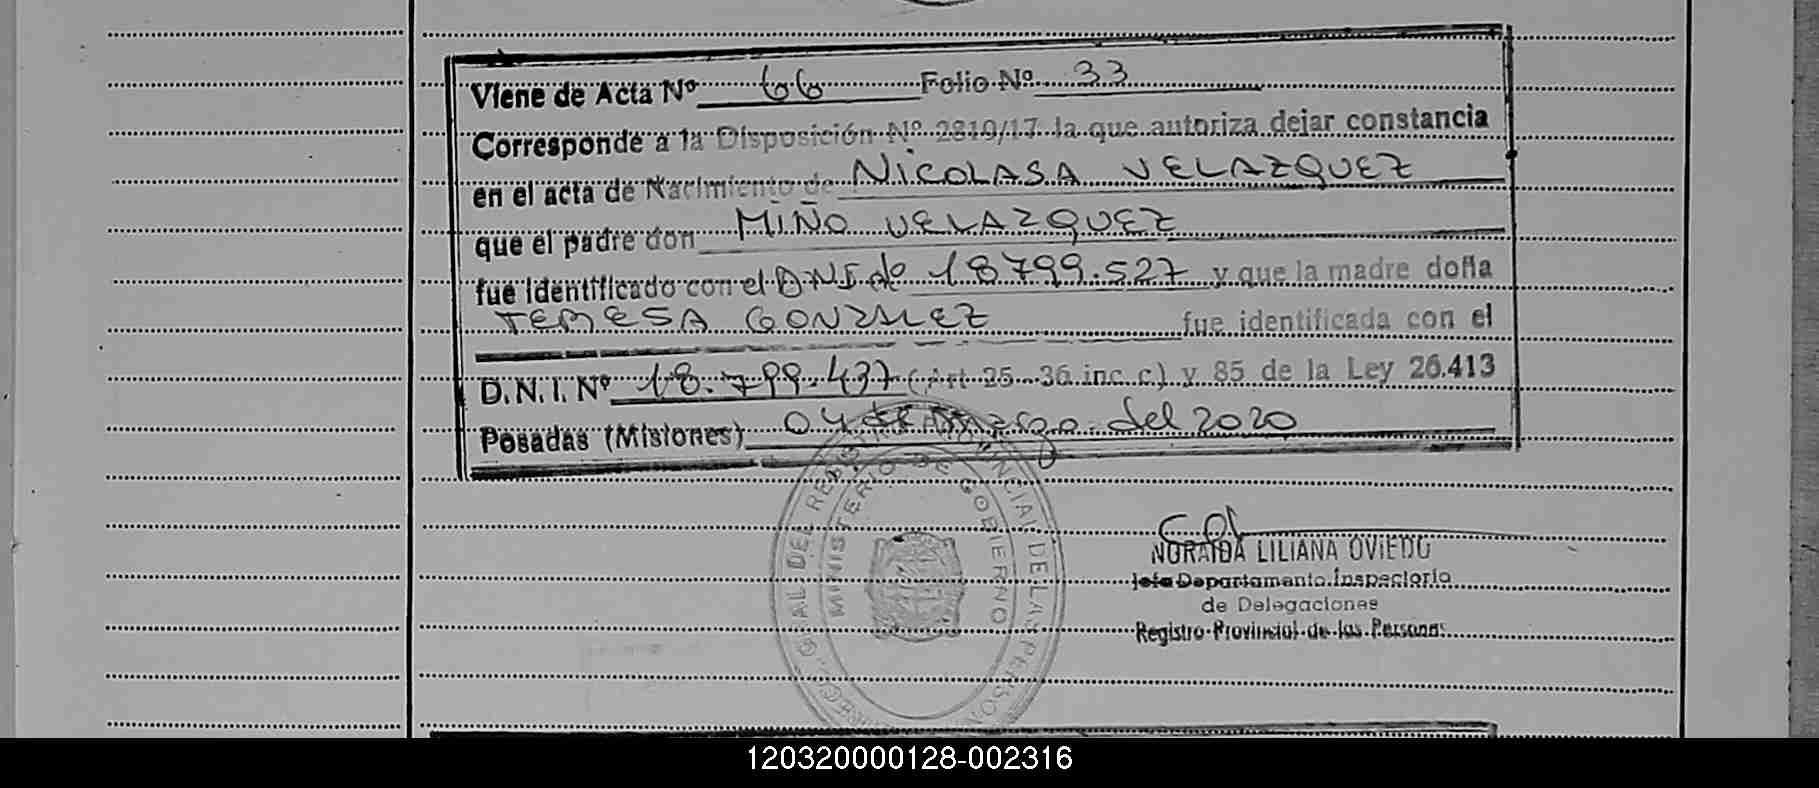 Viene de Acta Nº 66 Folio Nº 33
Corresponde a la Disposición Nº 2819/17 la que autoriza dejar constancia
en el acta de Nacimiento de NICOLASA VELAZQUEZ
que el padre don MIÑO VELAZQUEZ
fue identificado con el DNI Nº 18799.527 y que la madre doña
TERESA GONZALEZ fue identificada con el
D.N.I. Nº 18.799.437 (Art 25 - 36 inc c) y 85 de la Ley 26.413
Posadas (Misiones) 04 de Marzo del 2020
GRAL DEL REGISTRO PROVINCIAL DE LAS PERSON
MINISTERIO DE GOBIERNO
NORAIDA LILIANA OVIEDO
Jefa Departamento Inspectoría
de Delegaciones
Registro Provincial de las Personas
120320000128-002316